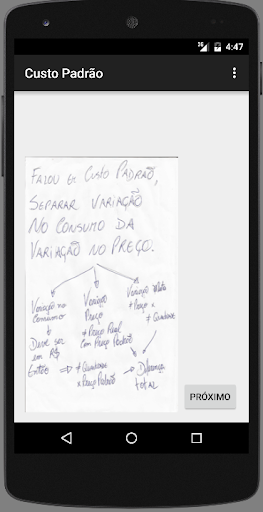 3G 4:47
Custo Padrão
FALOU EM CUSTO PADRÃO,
SEPARAR VARIAÇÃO
NO CONSUMO DA
VARIAÇÃO NO PREÇO.
Variação no Consumo
↓
Deve ser em R$
Então → ≠ Quantidade x Preço Padrão
Variação Preço
≠ Preço Real com Preço Padrão
Variação Mista
≠ Preço x
≠ Quantidade
→ Diferença total
PRÓXIMO